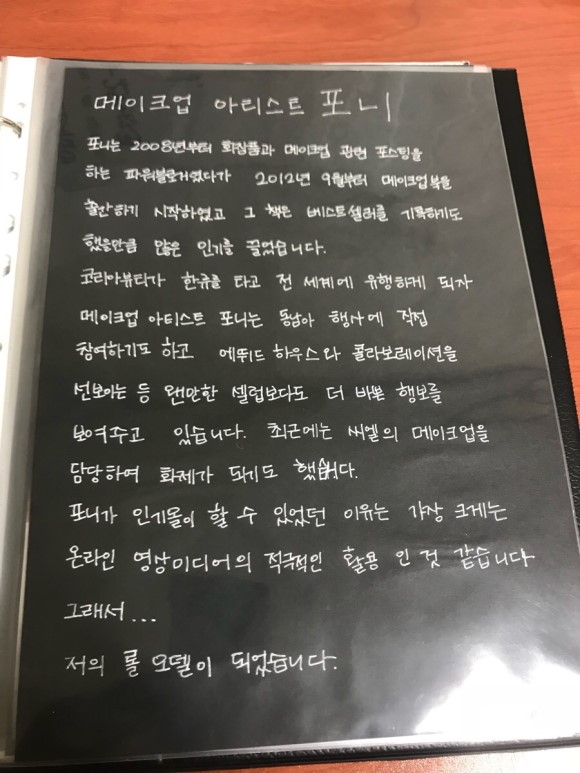 메이크업 아티스트 포니
포니는 2008년부터 화장품과 메이크업 관련 포스팅을
하는 파워블로거였다가 2012년 9월부터 메이크업북을
출간하기 시작하였고 그 책은 베스트셀러를 기록하기도
했을만큼 많은 인기를 끌었습니다.
코리아뷰티가 한류를 타고 전 세계에 유행하게 되자
메이크업 아티스트 포니는 동남아 행사에 직접
참여하기도 하고 에뛰드 하우스와 콜라보레이션을
선보이는 등 왠만한 셀럽보다도 더 바쁜 행보를
보여주고 있습니다. 최근에는 씨엘의 메이크업을
담당하여 화제가 되기도 했습니다.
포니가 인기몰이 할 수 있었던 이유는 가장 크게는
온라인 영상미디어의 적극적인 활용 인 것 같습니다
그래서...
저의 롤 모델이 되었습니다.